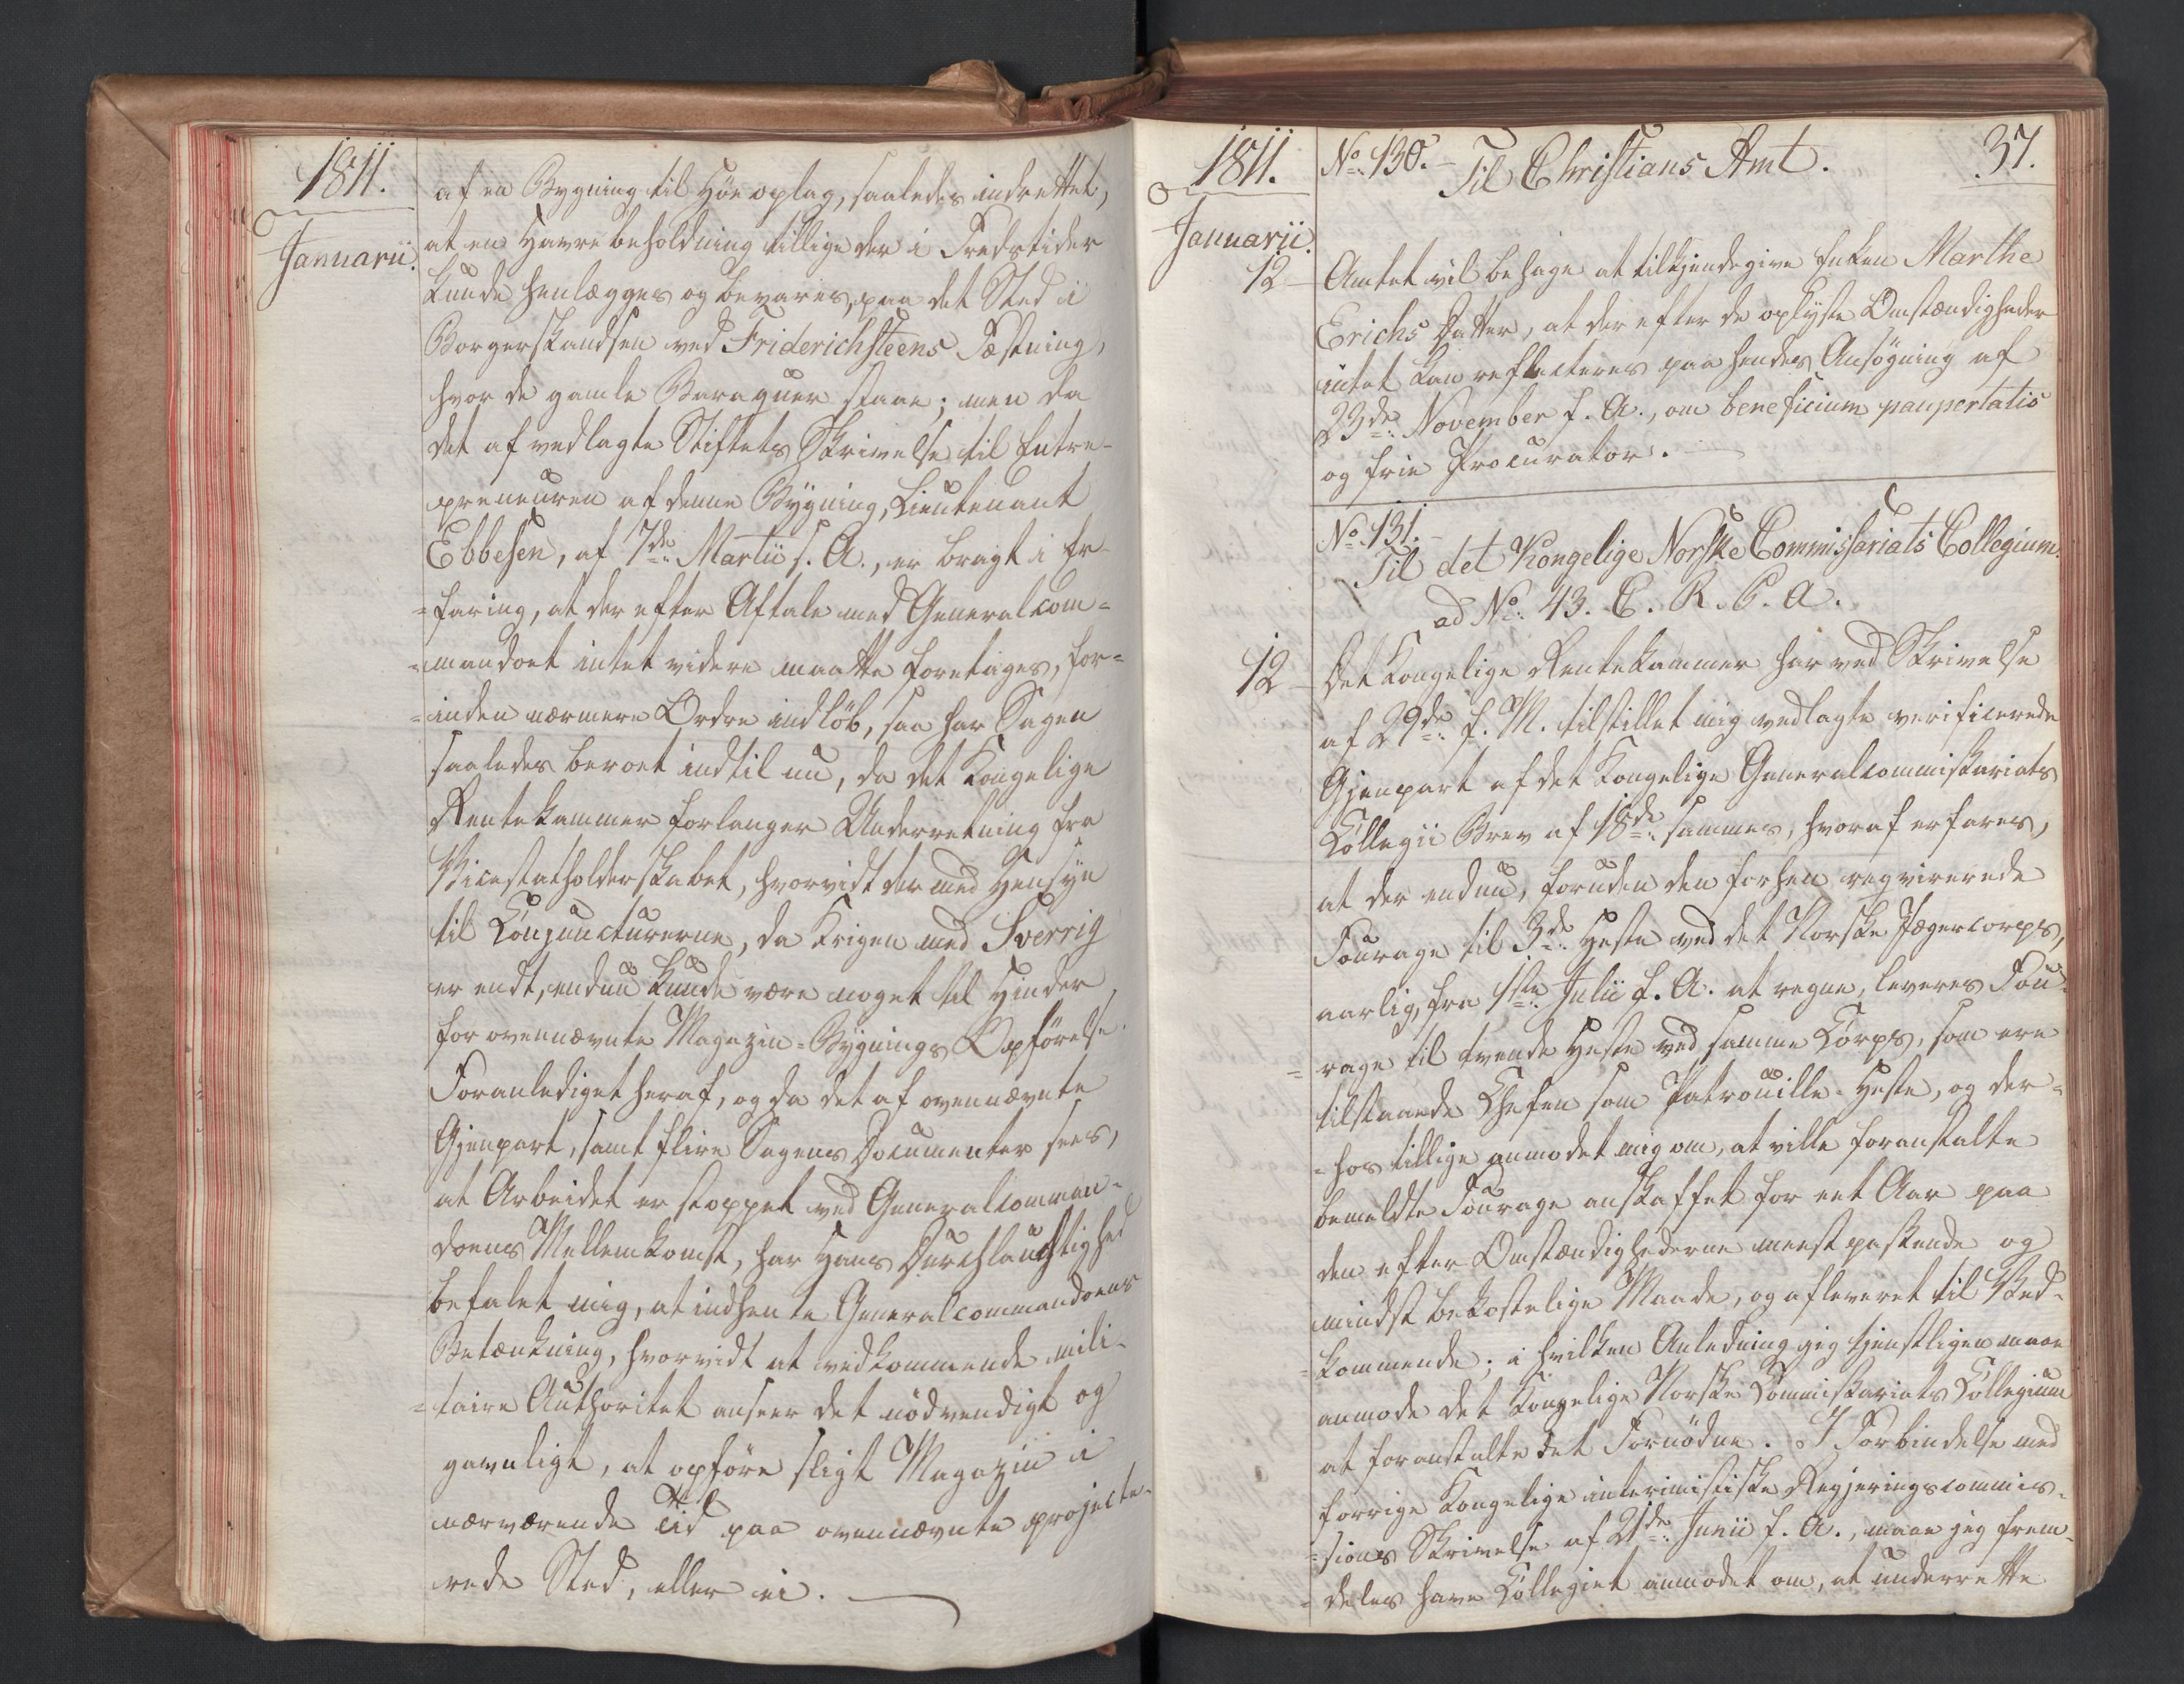 1811.
Januarii.
af en Bygning til Höe oplag, saaledes indrettet,
at en Havrebeholdning tillige der i Fredstider
kunde henlægges og bevares, paa det Sted i
Borgerskandsen ved Friderichsteens Fæstning,
hvor de gamle Baraquer staae; men da
det af vedlagte Stiftets Skrivelse til Entre-
preneuren af denne Bygning, Lieutenant
Ebbesen, af 7de Martii s. A., er bragt i Er-
=faring, at der efter Aftale med Generalcom=
=mandoet intet videre maatte foretages, for=
=inden nærmere Ordre indlöb, saa har Sagen
saaledes beroet indtil nu, da det Kongelige
Rentekammer forlanger Underretning fra
Vicestatholderskabet, hvorvidt der med Hensyn
til Conjuncturerne, da Krigen med Sverrig
er endt, endnu kunde være noget til Hinder
for ovennævnte Magazin-Bygnings Opförelse.
Foranlediget heraf, og da det af ovennævnte
Gjenpart, samt flere Sagens Documenter sees,
at Arbeidet er stoppet ved Generalcomman-
doens Mellemkomst, har Hans Durchlauchtighed
befalet mig, at indhente Generalcommandoens
Betænkning, hvorvidt at vedkommende mili-
=taire Authoritet anseer det nödvendigt og
gavnligt, at opföre sligt Magazin i
nærværende Tid paa ovennævnte projecte-
rede Sted, eller ei.
1811.
Januarii.
No. 130.
37.
Til Christians Amt.
12
Amtet vil behage at tilkjendegive Enken Marthe
Erichs Datter, at der efter de oplyste Omstændigheder
intet kan reflecteres paa hendes Ansögning af
23de November f. A., om beneficium paupertatis
og frie Procurator.
No. 131.
Til det Kongelige Norske Commissariats Collegium.
ad No. 43. C. R. P. A.
12
Det Kongelige Rentekammer har ved Skrivelse
af 29de f. M. tilstillet mig vedlagte verificerede
Gjenpart af det Kongelige Generalcommissariats
Collegii Brev af 18de sammes, hvoraf erfares,
at der endnu, foruden den forhen reqvirerede
Fourage til 3de Heste ved det Norske Jægercorps,
aarlig, fra 1ste Julii f. A. at regne, leveres Fou-
=rage til tvende Heste ved samme Corps, som ere
tilstaaede Chefen som Patrouille-Heste, og der=
=hos tillige anmodet mig om, at ville foranstalte
bemeldte Fourage anskaffet for eet Aar paa
den efter Omstændighederne meest passende og
mindst bekostelige Maade, og afleveret til Ved-
=kommende; i hvilken Anledning jeg tjenstligen maae
anmode det Kongelige Norske Commissariats Collegium
at foranstalte det Fornödne. I Forbindelse med
forrige Kongelige interimistiske Regjeringscommis-
=sions Skrivelse af 21de Junii f. A., maae jeg frem-
=deles have Collegiet anmodet om, at underrette